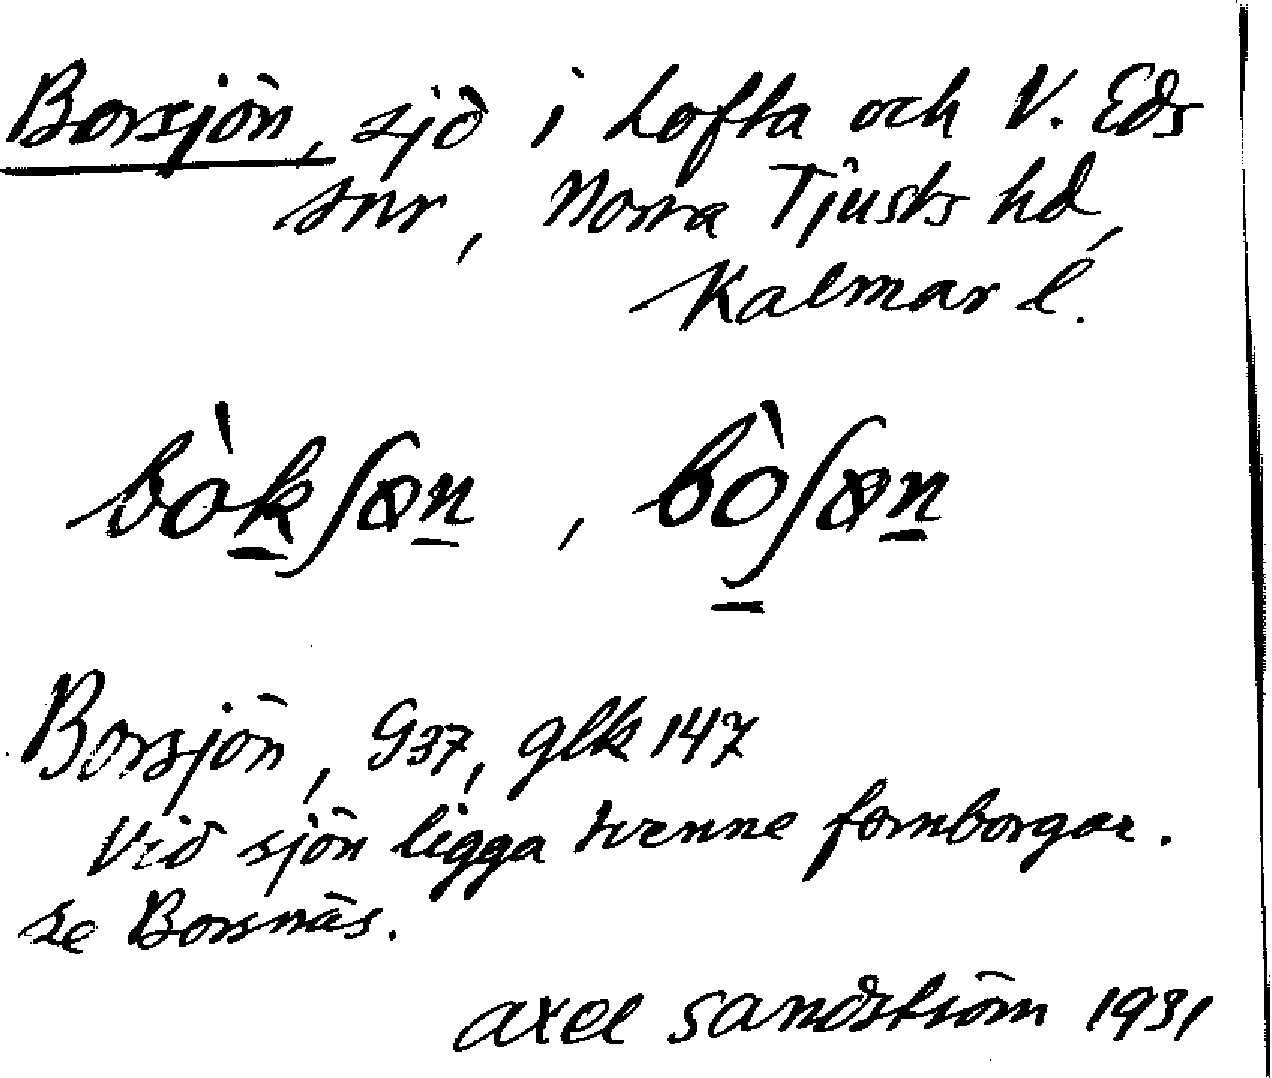 Borsjön, sjö i Lofta och V. Eds
snr, Norra Tjusts hd,
Kalmar l.
bòkʃøn, bòʃøn
Borsjön, G37, glk 147
Vid sjön ligga tvenne fornborgar.
se Borsnäs.
Axel Sandström 1931